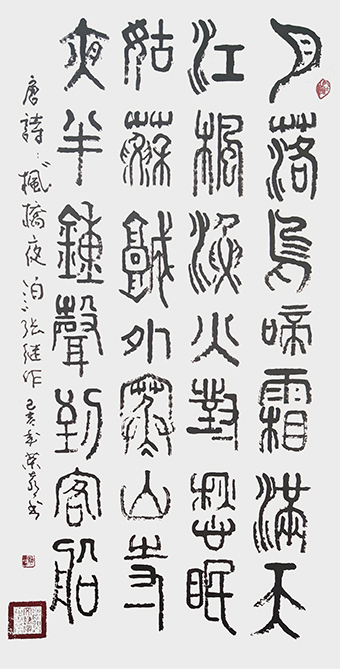 月落烏啼霜滿天
江楓漁火對愁眠
姑蘇城外寒山寺
夜半鍾聲到客船
唐詩：楓橋夜泊：张继作 己亥年